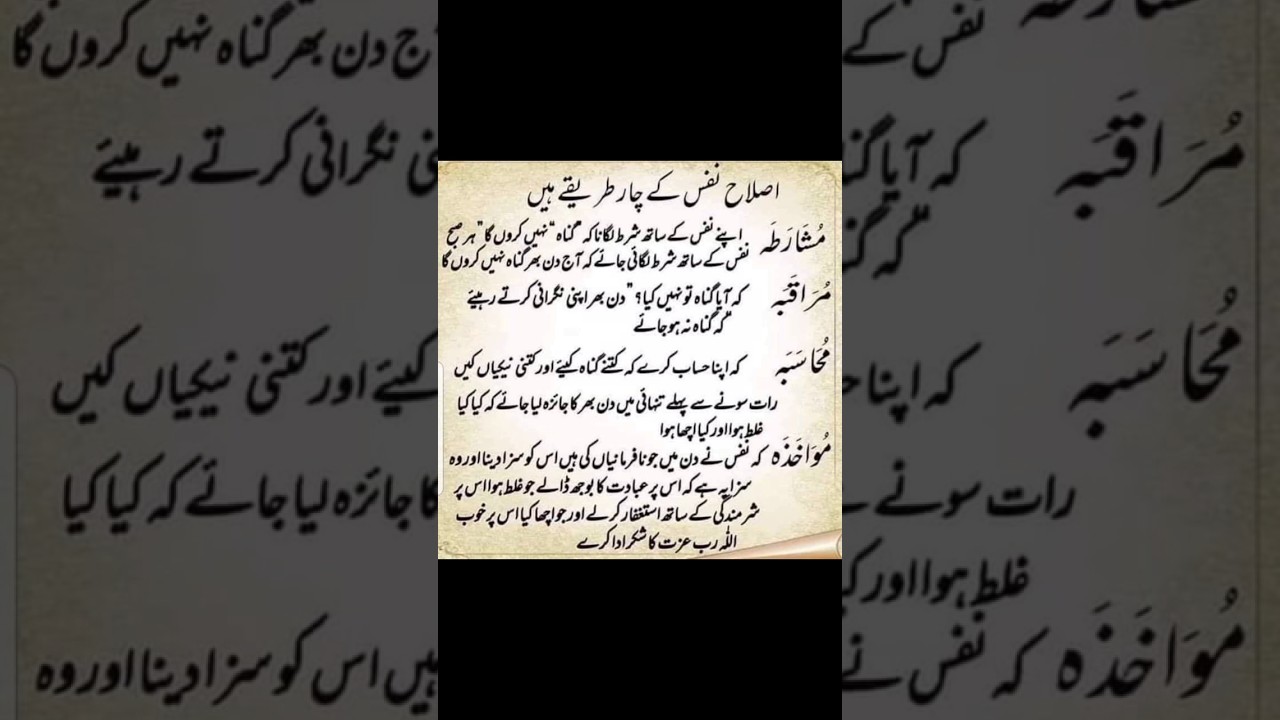 اصلاح نفس کے چار طریقے ہیں
مُشَارَطَہ اپنے نفس کے ساتھ شرط لگانا کہ "گناہ" نہیں کروں گا" ہر صبح
نفس کے ساتھ شرط لگائی جائے کہ آج دن بھر گناہ نہیں کروں گا
مُرَاقَبَہ کہ آیا گناہ تو نہیں کیا؟ "دن بھر اپنی نگرانی کرتے رہیئے
کہ گناہ نہ ہو جائے"
مُحَاسَبَہ کہ اپنا حساب کرے کہ کتنے گناہ کیئے اور کتنی نیکیاں کیں
رات سونے سے پہلے تنہائی میں دن بھر کا جائزہ لیا جائے کہ کیا کیا
غلط ہوا اور کیا اچھا ہوا
مُوَاخَذَہ کہ نفس نے دن میں جو نافرمانیاں کی ہیں اس کو سزا دینا اور وہ
سزا یہ ہے کہ اس پر عبادت کا بوجھ ڈالے جو غلط ہوا اس پر
شرمندگی کے ساتھ استغفار کرلے اور جو اچھا کیا اس پر خوب
اللّٰہ رب عزت کا شکر ادا کرے